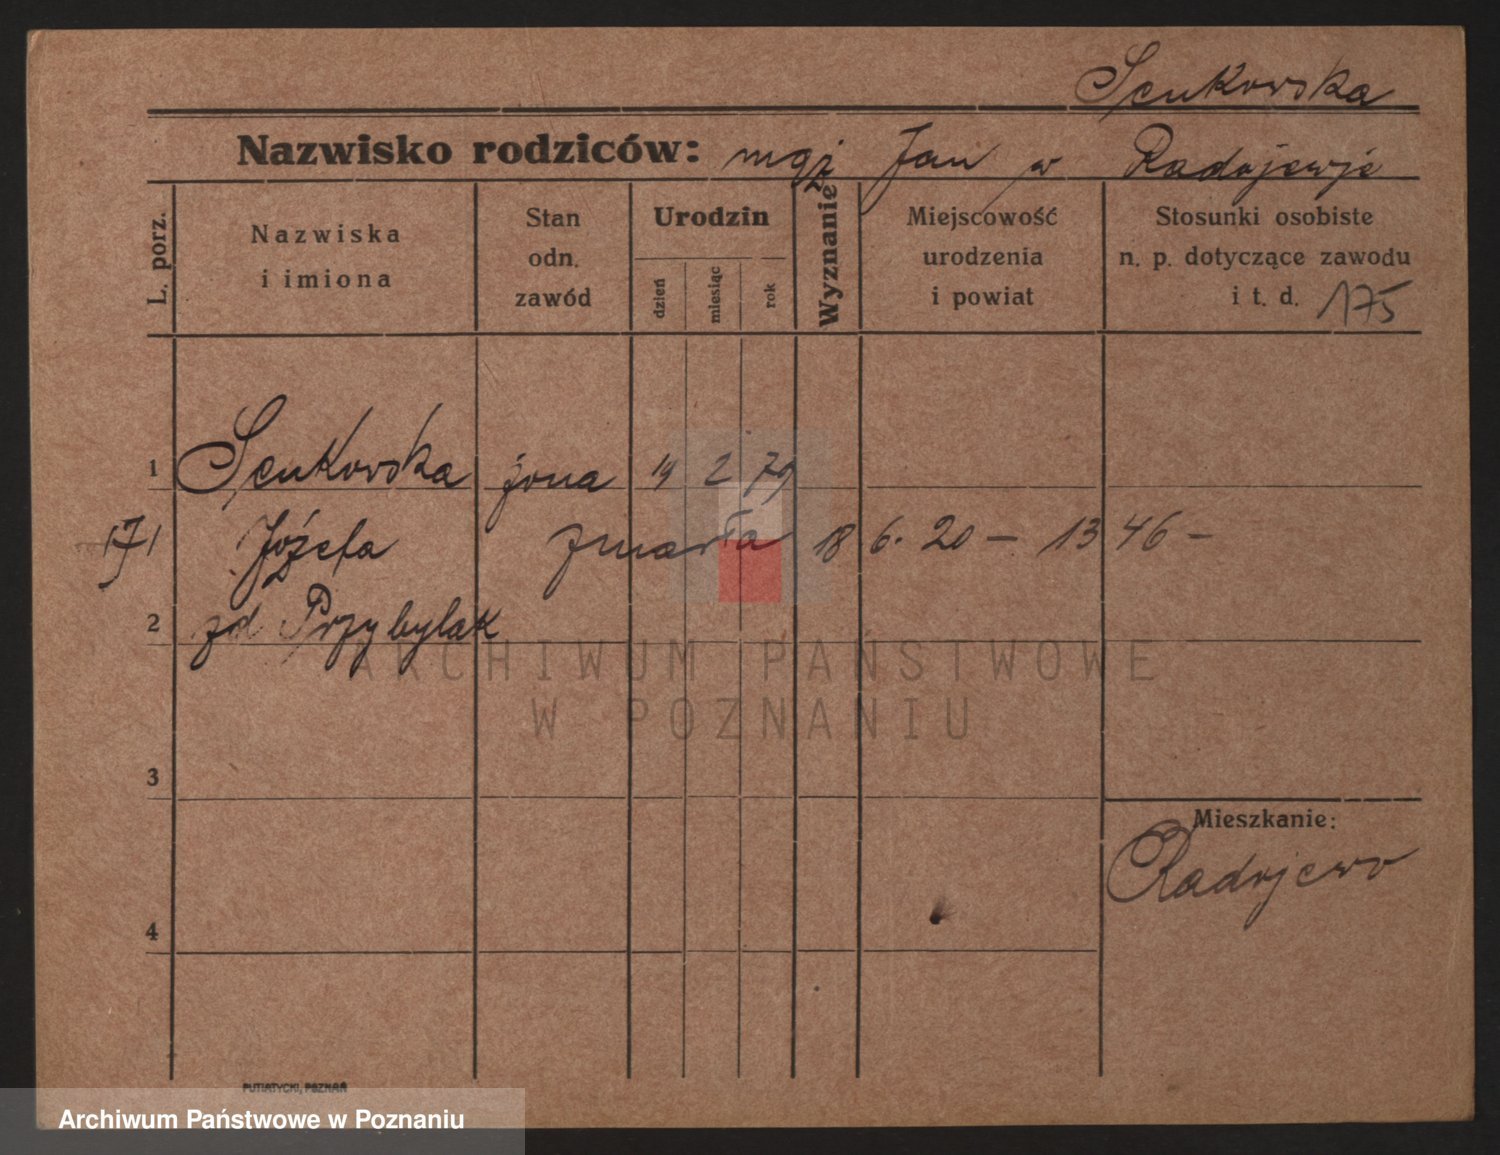 Senkowska
Nazwisko rodziców: mąż Jan w Radojewie
L. porz.
Nazwiska
i imiona
Stan
odn.
zawód
Urodzin
dzień
miesiąc
rok
Wyznanie
Miejscowość
urodzenia
i powiat
Stosunki osobiste
n. p. dotyczące zawodu
i t. d. 175
1 Senkowska żona 19 2 79
171 Józefa zmarła 18 6. 20 — 13 46 —
2 zd Przybylak
3
4
Mieszkanie:
Radojewo
PUTIATYCKI, POZNAŃ
ARCHIWUM PAŃSTWOWE
W POZNANIU
Archiwum Państwowe w Poznaniu